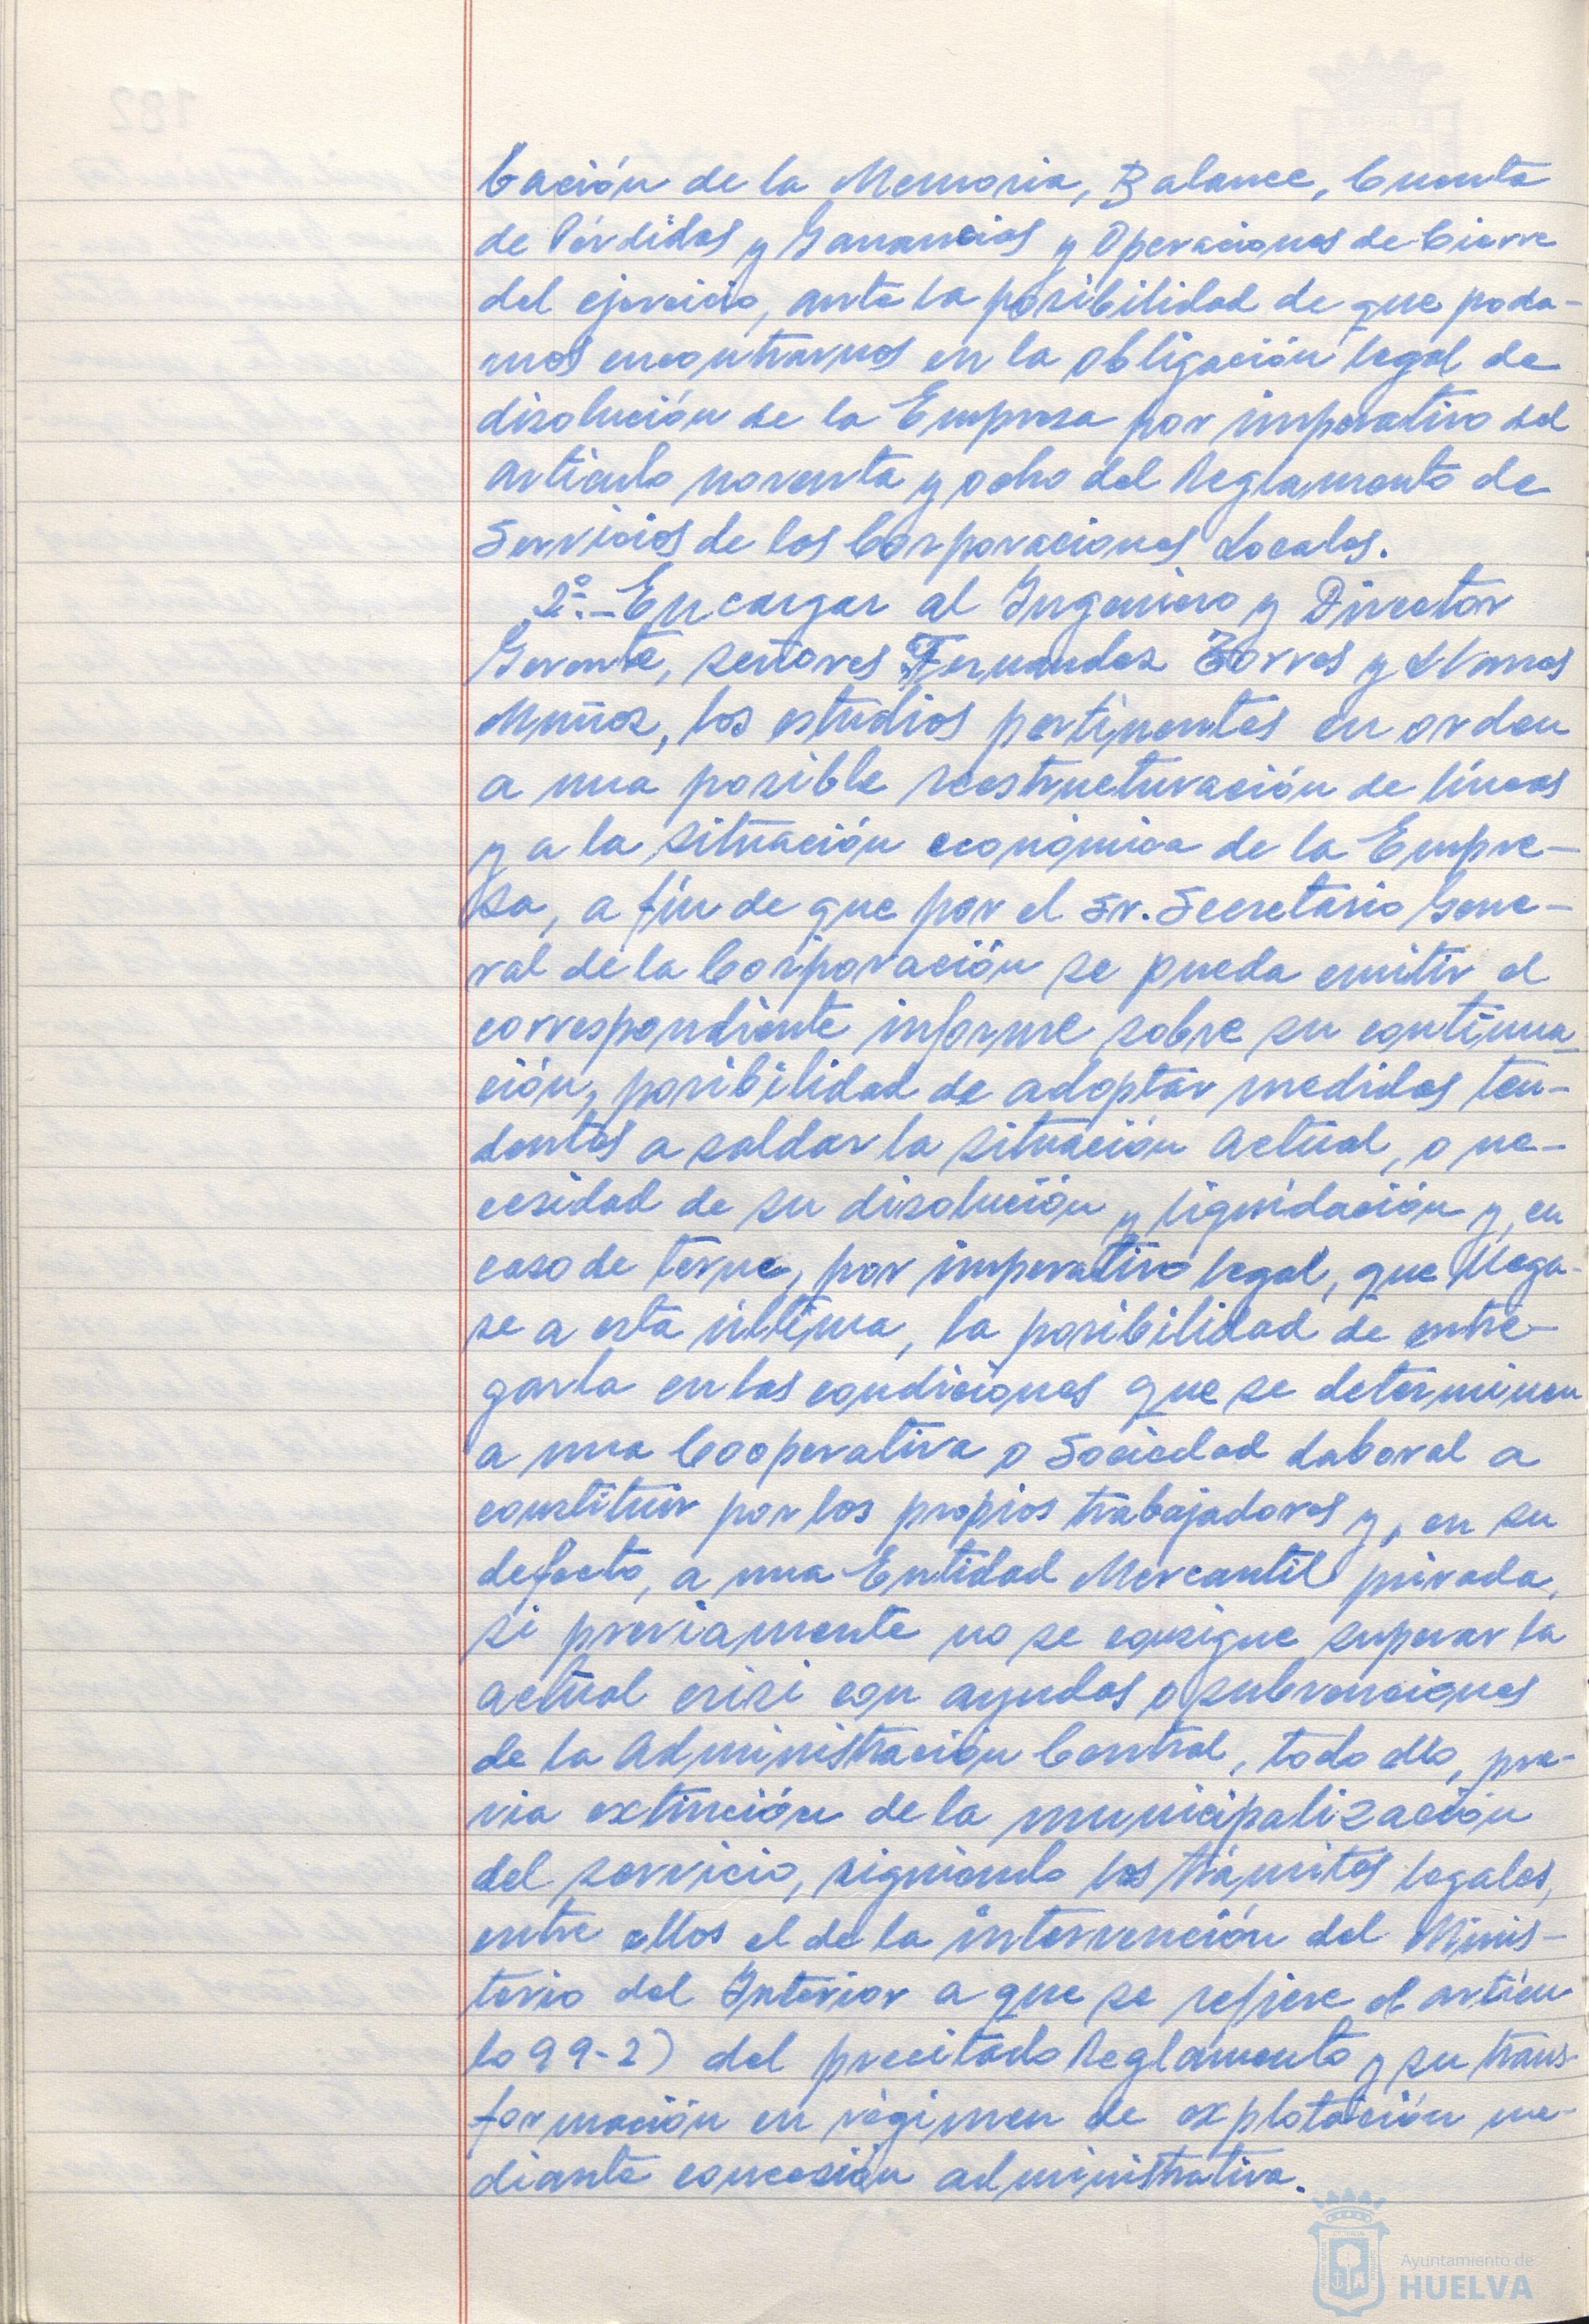 bación de la Memoria, Balance, Cuenta
de Pérdidas y Ganancias y Operaciones de Cierre
del ejercicio, ante la posibilidad de que poda-
mos encontrarnos en la obligación legal de
disolución de la Empresa por imperativo del
artículo noventa y ocho del Reglamento de
Servicios de las Corporaciones Locales.
2º.- Encargar al Ingeniero y Director
Gerente, señores Fernandez Torres y Llanes
Muñoz, los estudios pertinentes en orden
a una posible reestructuración de líneas
y a la situación económica de la Empre-
sa, a fin de que por el Sr. Secretario Gene-
ral de la Corporación se pueda emitir el
correspondiente informe sobre su continua-
ción, posibilidad de adoptar medidas ten-
dentes a saldar la situación actual, o ne-
cesidad de su disolución y liquidación y, en
caso de , por imperativo legal, que llega-
se a esta última, la posibilidad de entre-
garla en las condiciones que se determinen
a una Cooperativa o Sociedad Laboral a
constituir por los propios trabajadores y, en su
defecto, a una Entidad Mercantil privada,
si previamente no se consigue superar la
actual crisi con ayudas o subvenciones
de la Administración Central, todo ello, pre-
via extinción de la municipalización
del servicio, siguiendo los trámites legales,
entre ellos el de la intervención del Minis-
terio del Interior a que se refiere el artícu
lo 99-2) del precitado Reglamento y su trans-
formación en régimen de explotación me-
diante concesión administrativa.
Ayuntamiento de
HUELVA